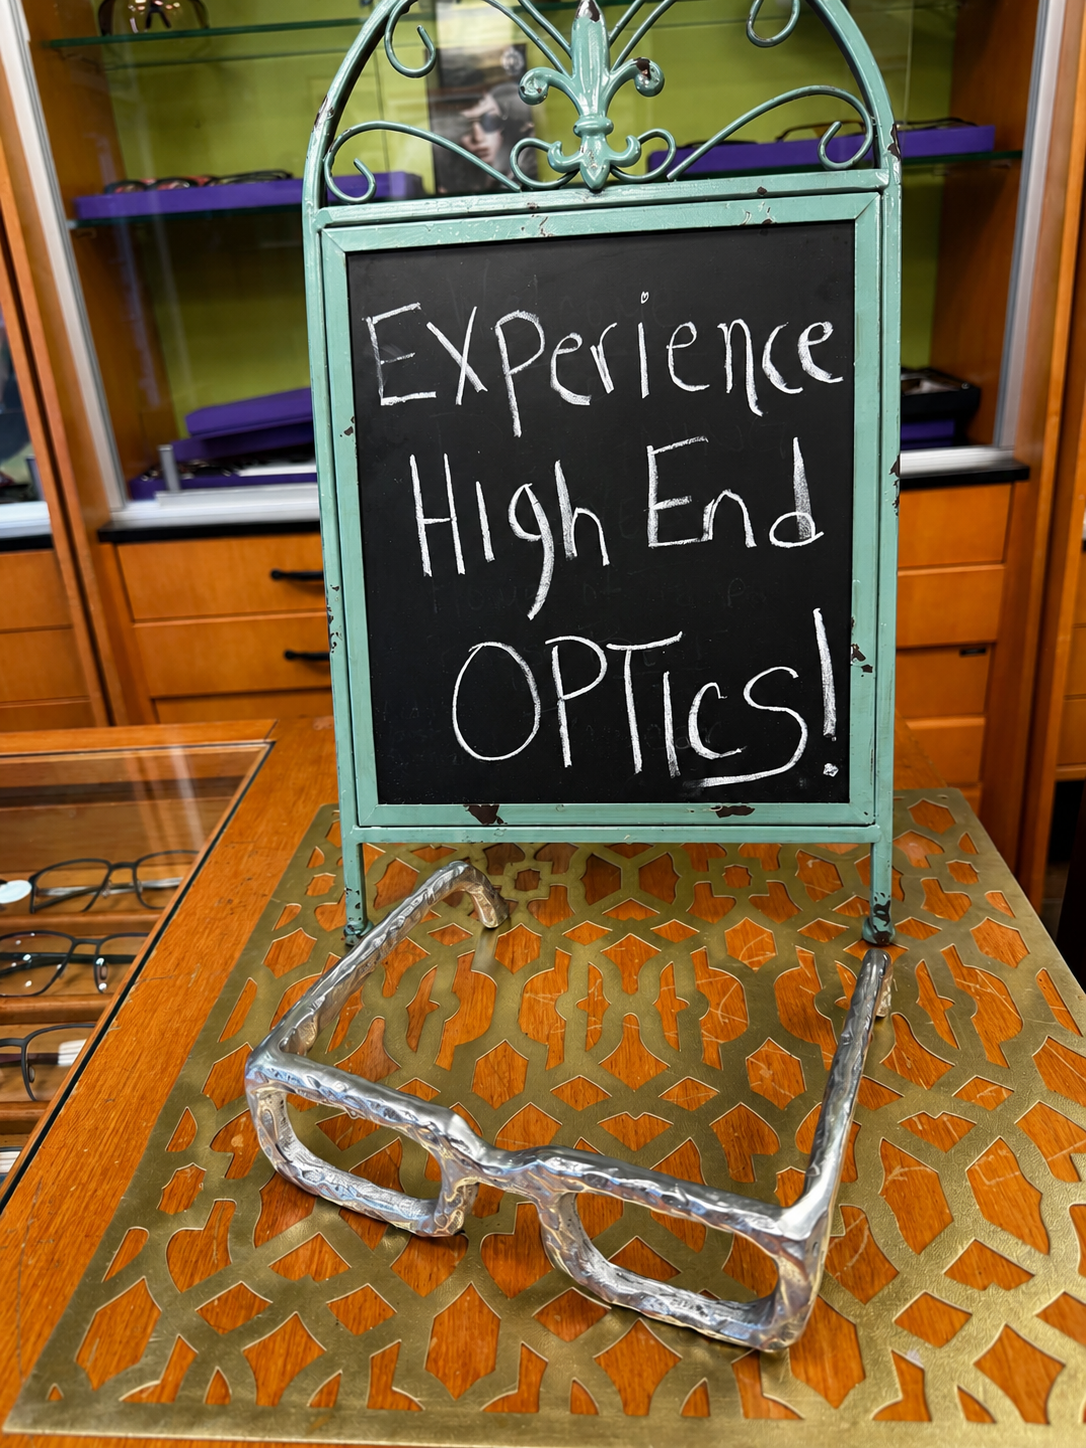 Experience
High End
OPTICS!